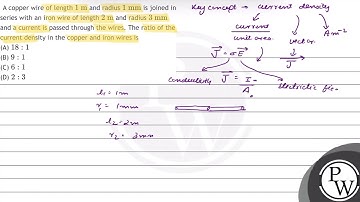 A copper wire of length 1 m and radius 1 mm is joined in
series with an iron wire of length 2 m and radius 3 mm
and a current is passed through the wires. The ratio of the
current density in the copper and iron wires is
(A) 18 : 1
(B) 9 : 1
(C) 6 : 1
(D) 2 : 3
Key concept → current density
current
unit area
vector
Am⁻²
J⃗ = σE⃗
J⃗
conductivity
J⃗ = I/A
l₁ = 1m
r₁ = 1mm
l₂ = 2m
r₂ = 3mm
PW